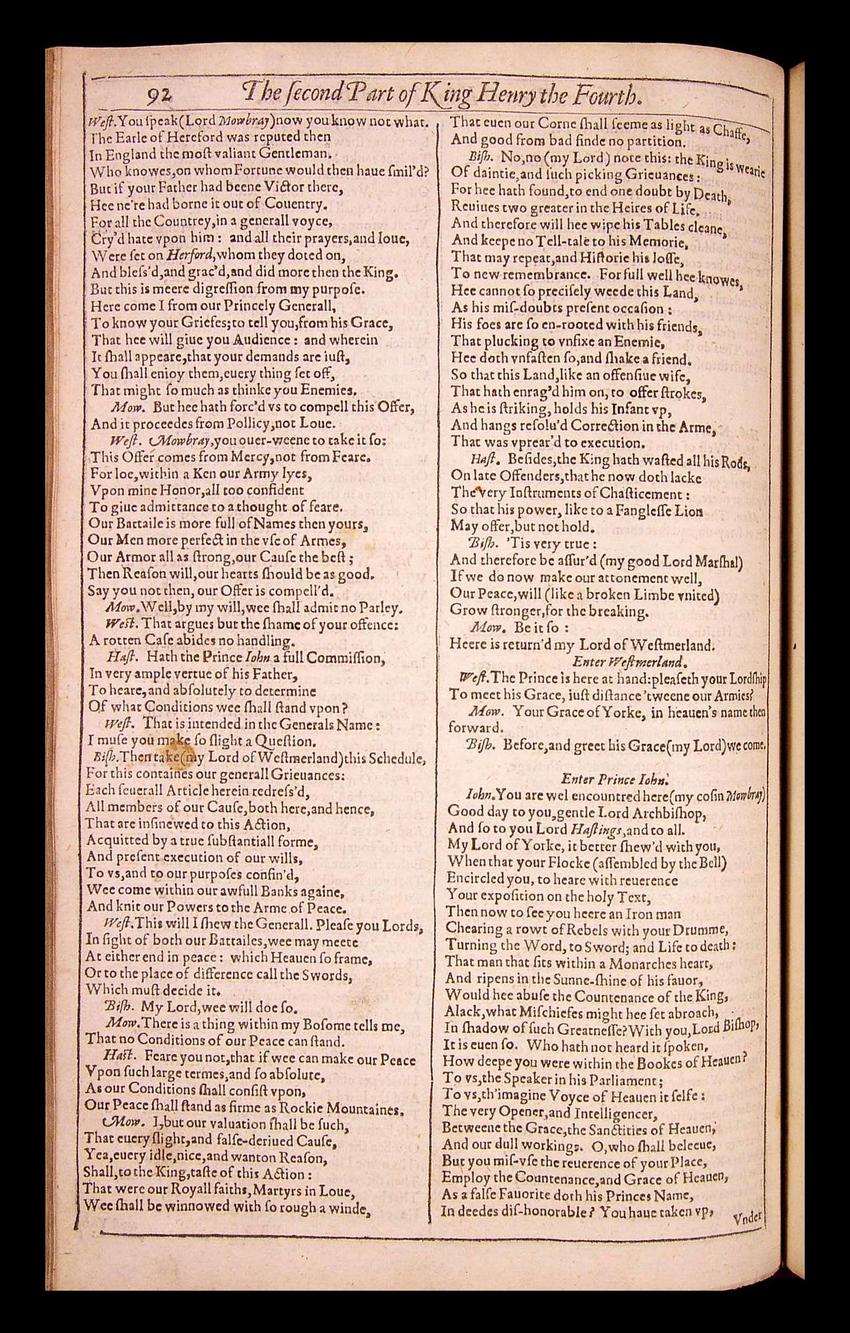 92 The ſecond Part of King Henry the Fourth.
Weſt. You ſpeak (Lord Mowbray) now you know not what.
The Earle of Hereford was reputed then
In England the moſt valiant Gentleman.
Who knowes, on whom Fortune would then haue ſmil'd?
But if your Father had beene Victor there,
Hee ne're had borne it out of Couentry.
For all the Countrey, in a generall voyce,
Cry'd hate vpon him: and all their prayers, and loue,
Were ſet on Herford, whom they doted on,
And bleſs'd, and grac'd, and did more then the King.
But this is meere digreſſion from my purpoſe.
Here come I from our Princely Generall,
To know your Griefes; to tell you, from his Grace,
That hee will giue you Audience: and wherein
It ſhall appeare, that your demands are iuſt,
You ſhall enioy them, euery thing ſet off,
That might ſo much as thinke you Enemies.
Mow. But hee hath forc'd vs to compell this Offer,
And it proceedes from Pollicy, not Loue.
Weſt. Mowbray, you ouer-weene to take it ſo:
This Offer comes from Mercy, not from Feare.
For loe, within a Ken our Army lyes,
Vpon mine Honor, all too confident
To giue admittance to a thought of feare.
Our Battaile is more full of Names then yours,
Our Men more perfect in the vſe of Armes,
Our Armor all as ſtrong, our Cauſe the beſt;
Then Reaſon will, our hearts ſhould be as good.
Say you not then, our Offer is compell'd.
Mow. Well, by my will, wee ſhall admit no Parley.
Weſt. That argues but the ſhame of your offence:
A rotten Caſe abides no handling.
Haſt. Hath the Prince Iohn a full Commiſſion,
In very ample vertue of his Father,
To heare, and abſolutely to determine
Of what Conditions wee ſhall ſtand vpon?
Weſt. That is intended in the Generals Name:
I muſe you make ſo ſlight a Queſtion.
Biſh. Then take (my Lord of Weſtmerland) this Schedule,
For this containes our generall Grieuances:
Each ſeuerall Article herein redreſs'd,
All members of our Cauſe, both here, and hence,
That are inſinewed to this Action,
Acquitted by a true ſubſtantiall forme,
And preſent execution of our wills,
To vs, and to our purpoſes confin'd,
Wee come within our awfull Banks againe,
And knit our Powers to the Arme of Peace.
Weſt. This will I ſhew the Generall. Pleaſe you Lords,
In ſight of both our Battailes, wee may meete
At either end in peace: which Heauen ſo frame,
Or to the place of difference call the Swords,
Which muſt decide it.
Biſh. My Lord, wee will doe ſo.
Mow. There is a thing within my Boſome tells me,
That no Conditions of our Peace can ſtand.
Haſt. Feare you not, that if wee can make our Peace
Vpon ſuch large termes, and ſo abſolute,
As our Conditions ſhall conſiſt vpon,
Our Peace ſhall ſtand as firme as Rockie Mountaines.
Mow. I, but our valuation ſhall be ſuch,
That euery ſlight, and falſe-deriued Cauſe,
Yea, euery idle, nice, and wanton Reaſon,
Shall, to the King, taſte of this Action:
That were our Royall faiths, Martyrs in Loue,
Wee ſhall be winnowed with ſo rough a winde,
That euen our Corne ſhall ſeeme as light as Chaffe,
And good from bad finde no partition.
Biſh. No, no (my Lord) note this: the King is wearie
Of daintie, and ſuch picking Grieuances:
For hee hath found, to end one doubt by Death,
Reuiues two greater in the Heires of Life.
And therefore will hee wipe his Tables cleane,
And keepe no Tell-tale to his Memorie,
That may repeat, and Hiſtorie his loſſe,
To new remembrance. For full well hee knowes,
Hee cannot ſo preciſely weede this Land,
As his miſ-doubts preſent occaſion:
His foes are ſo en-rooted with his friends,
That plucking to vnfixe an Enemie,
Hee doth vnfaſten ſo, and ſhake a friend.
So that this Land, like an offenſiue wife,
That hath enrag'd him on, to offer ſtrokes,
As he is ſtriking, holds his Infant vp,
And hangs reſolu'd Correction in the Arme,
That was vprear'd to execution.
Haſt. Beſides, the King hath waſted all his Rods,
On late Offenders, that he now doth lacke
The very Inſtruments of Chaſticement:
So that his power, like to a Fangleſſe Lion
May offer, but not hold.
Biſh. 'Tis very true:
And therefore be aſſur'd (my good Lord Marſhal)
If we do now make our attonement well,
Our Peace, will (like a broken Limbe vnited)
Grow ſtronger, for the breaking.
Mow. Be it ſo:
Heere is return'd my Lord of Weſtmerland.
Enter Weſtmerland.
Weſt. The Prince is here at hand: pleaſeth your Lordſhip
To meet his Grace, iuſt diſtance 'tweene our Armies?
Mow. Your Grace of Yorke, in heauen's name then
forward.
Biſh. Before, and greet his Grace (my Lord) we come.
Enter Prince Iohn.
Iohn. You are wel encountred here (my coſin Mowbray)
Good day to you, gentle Lord Archbiſhop,
And ſo to you Lord Haſtings, and to all.
My Lord of Yorke, it better ſhew'd with you,
When that your Flocke (aſſembled by the Bell)
Encircled you, to heare with reuerence
Your expoſition on the holy Text,
Then now to ſee you heere an Iron man
Chearing a rowt of Rebels with your Drumme,
Turning the Word, to Sword; and Life to death:
That man that ſits within a Monarches heart,
And ripens in the Sunne-ſhine of his fauor,
Would hee abuſe the Countenance of the King,
Alack, what Miſchiefes might hee ſet abroach,
In ſhadow of ſuch Greatneſſe? With you, Lord Biſhop,
It is euen ſo. Who hath not heard it ſpoken,
How deepe you were within the Bookes of Heauen?
To vs, the Speaker in his Parliament;
To vs, th'imagine Voyce of Heauen it ſelfe:
The very Opener, and Intelligencer,
Betweene the Grace, the Sanctities of Heauen;
And our dull workings. O, who ſhall beleeue,
But you miſ-vſe the reuerence of your Place,
Employ the Countenance, and Grace of Heauen,
As a falſe Fauorite doth his Princes Name,
In deedes diſ-honorable? You haue taken vp,
Vnder